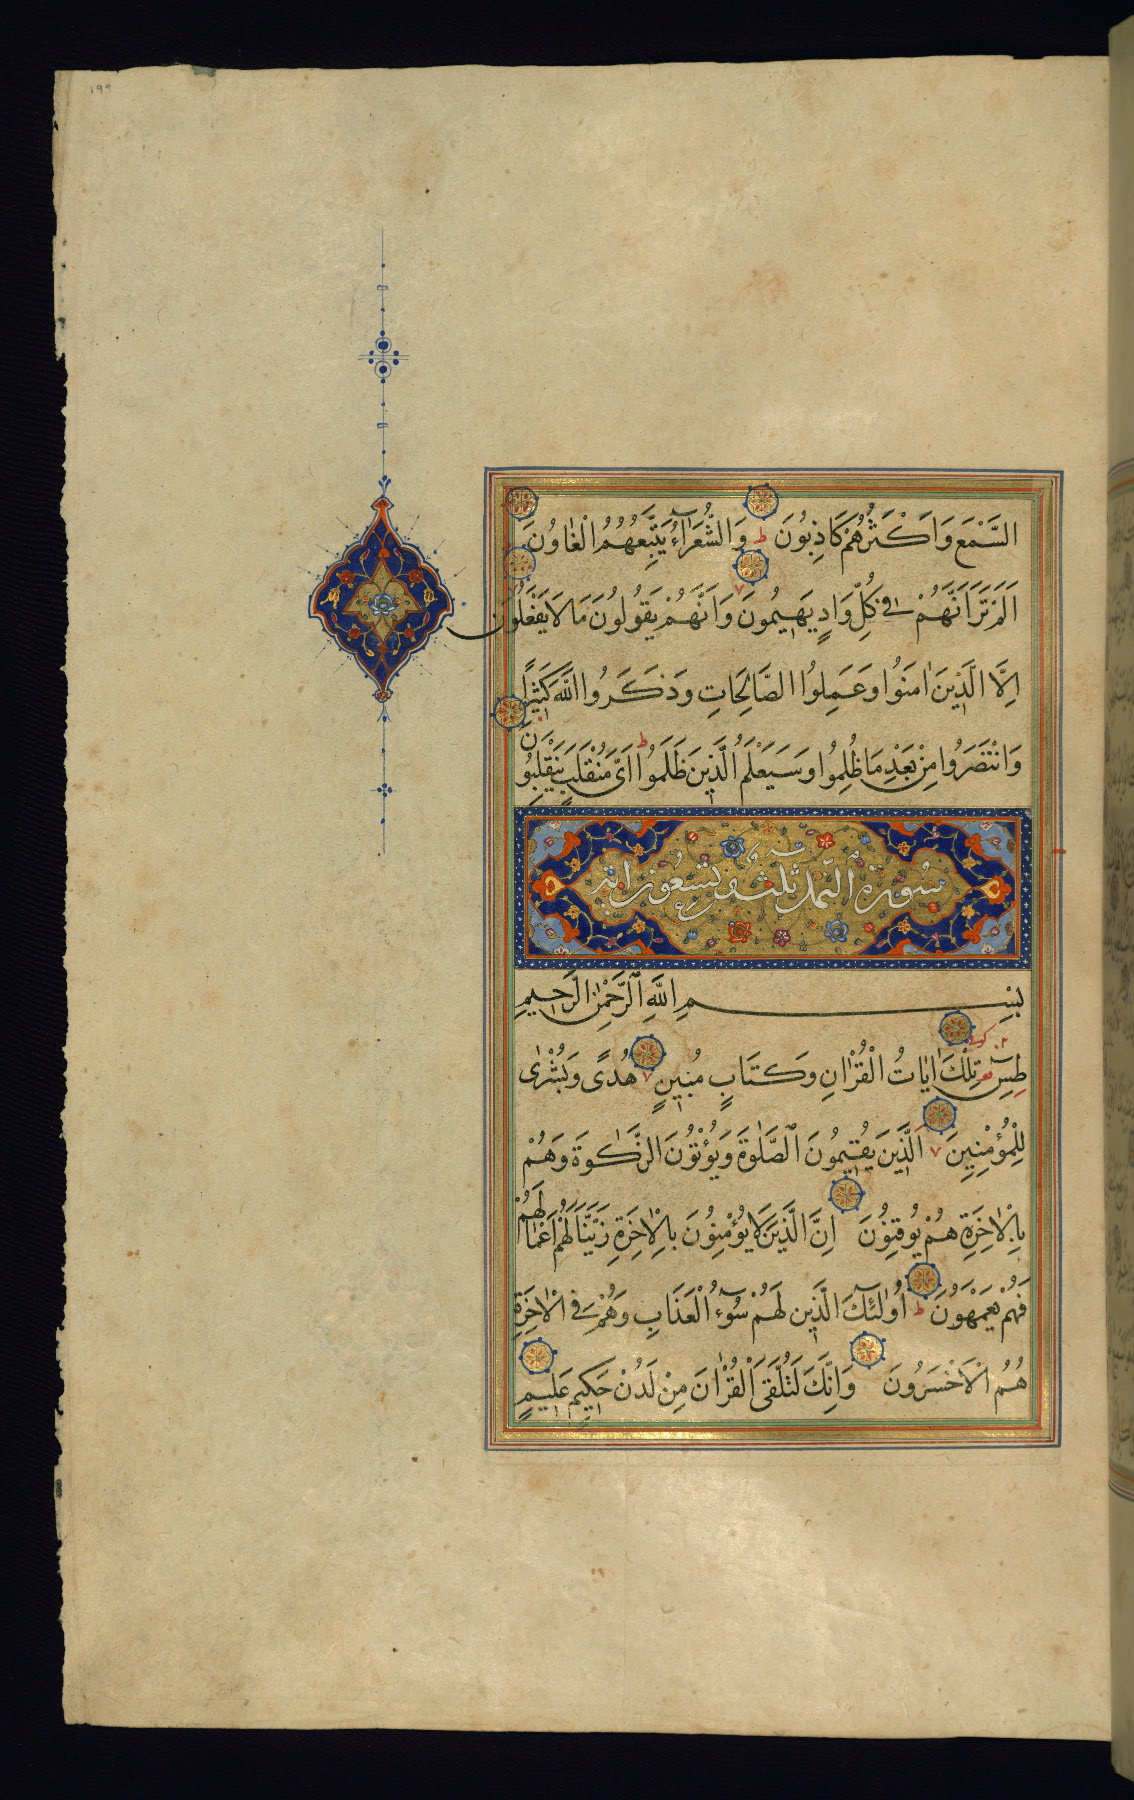 ١٩٩
السَّمْعَ وَاَكْثَرُهُمْ كَاذِبُونَ ط وَالشُّعَرَآءُ يَتَّبِعُهُمُ الْغَاوُنَ
اَلَمْ تَرَ اَنَّهُمْ فِي كُلِّ وَادٍ يَهِيمُونَ وَاَنَّهُمْ يَقُولُونَ مَا لَا يَفْعَلُونَ
اِلَّا الَّذِينَ اٰمَنُوا وَعَمِلُوا الصَّالِحَاتِ وَذَكَرُوا اللّٰهَ كَثِيرًا
وَانْتَصَرُوا مِنْ بَعْدِ مَا ظُلِمُوا ط وَسَيَعْلَمُ الَّذِينَ ظَلَمُوا اَىَّ مُنْقَلَبٍ يَنْقَلِبُونَ
سورة النمل ثلث وتسعون اية
بِسْمِ اللّٰهِ الرَّحْمٰنِ الرَّحِيمِ
طٰسٓ تِلْكَ اٰيَاتُ الْقُرْاٰنِ وَكِتَابٍ مُبِينٍ هُدًى وَبُشْرٰى
لِلْمُؤْمِنِينَ اَلَّذِينَ يُقِيمُونَ الصَّلٰوةَ وَيُؤْتُونَ الزَّكٰوةَ وَهُمْ
بِالْاٰخِرَةِ هُمْ يُوقِنُونَ اِنَّ الَّذِينَ لَا يُؤْمِنُونَ بِالْاٰخِرَةِ زَيَّنَّا لَهُمْ اَعْمَالَهُمْ
فَهُمْ يَعْمَهُونَ ط اُولٰئِكَ الَّذِينَ لَهُمْ سُوٓءُ الْعَذَابِ وَهُمْ فِي الْاٰخِرَةِ
هُمُ الْاَخْسَرُونَ وَاِنَّكَ لَتُلَقَّى الْقُرْاٰنَ مِنْ لَدُنْ حَكِيمٍ عَلِيمٍ